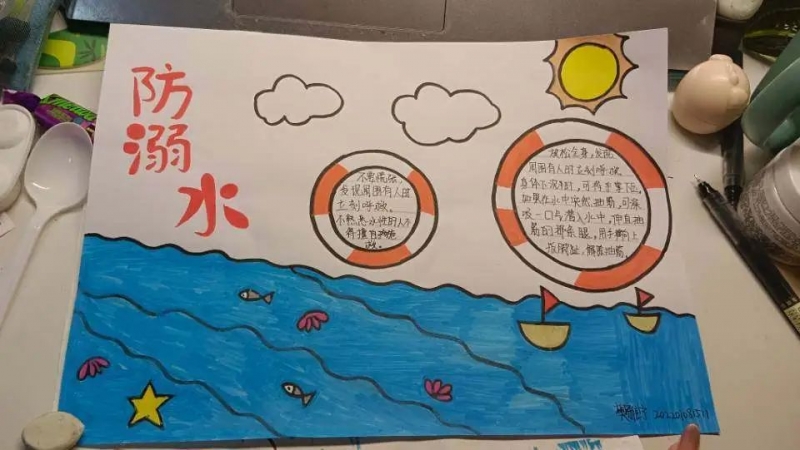 防
溺
水
不要慌张,
发现周围有人时
立刻呼救
不熟悉水性的人不
得擅自施
救。
放松全身,发现
周围有人时立刻呼救
身体下沉时,可将手掌下压
如果在水中突然抽筋,可深
吸一口气潜入水中,伸直抽
筋的那条腿,用手
拉脚趾,解救抽筋。